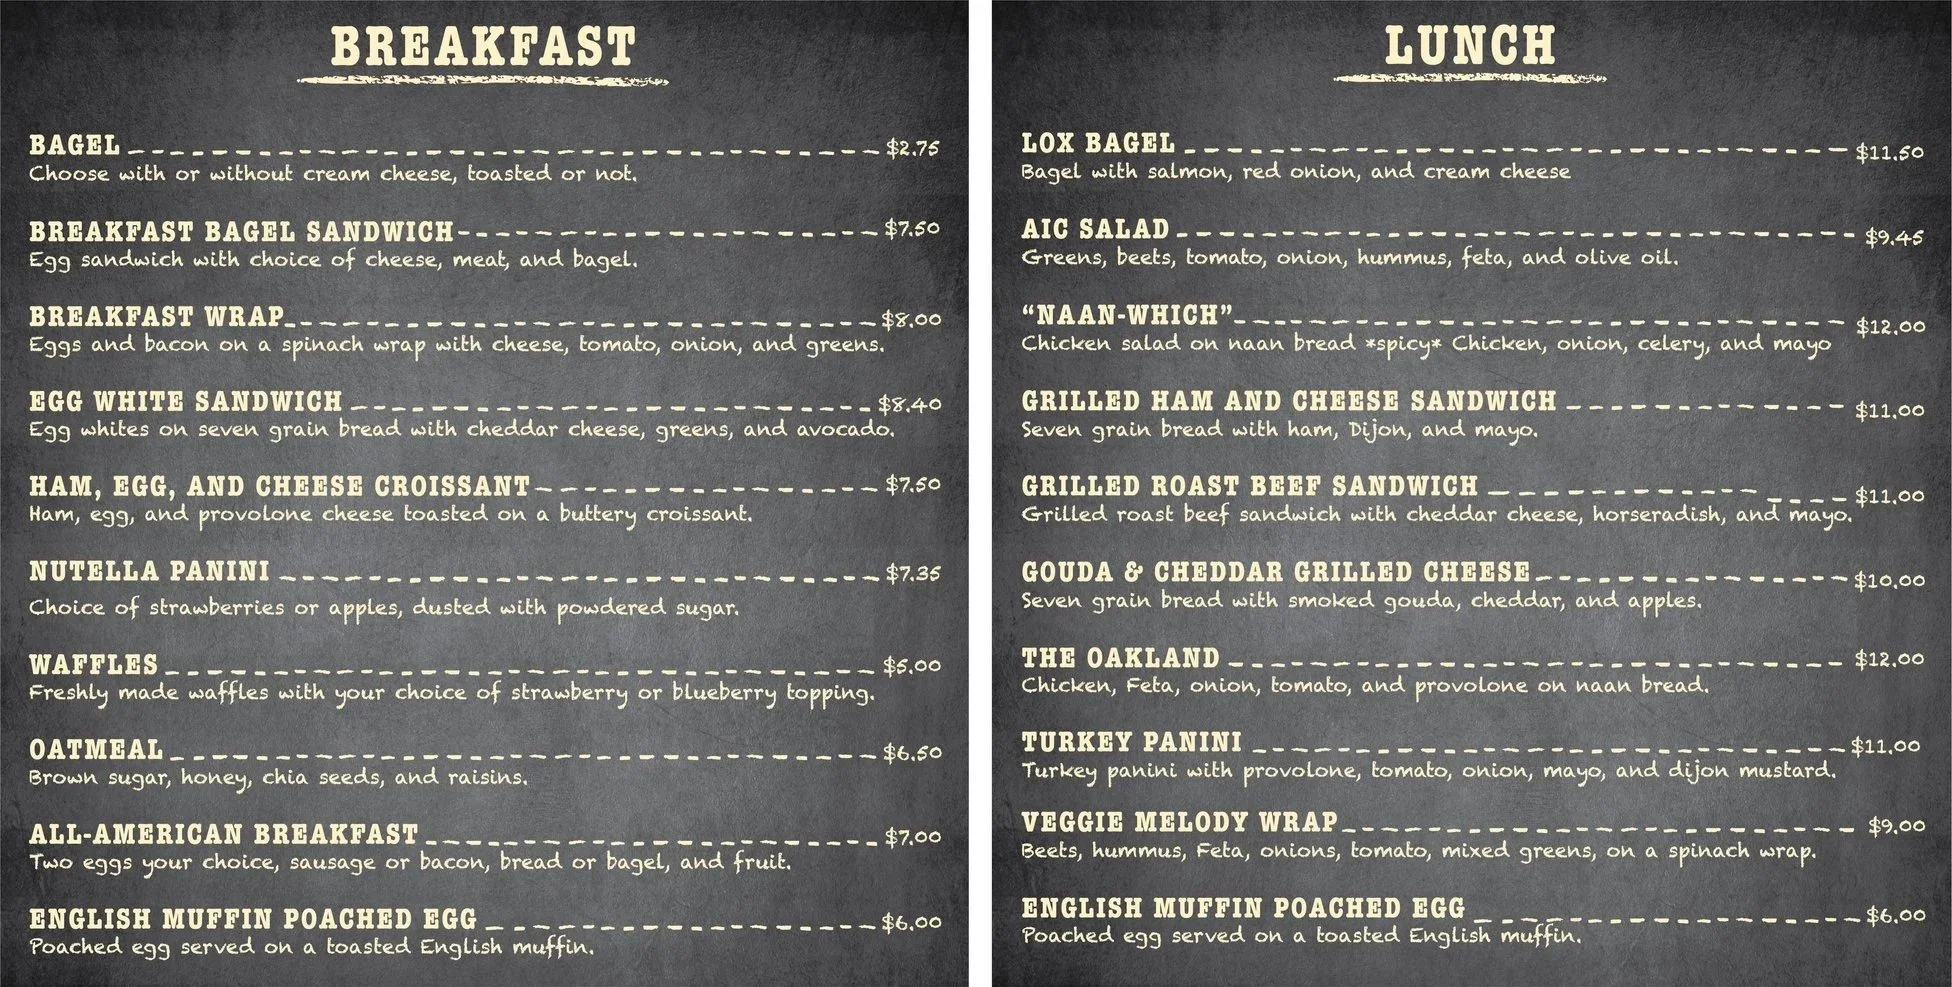 BREAKFAST
BAGEL $2.75
Choose with or without cream cheese, toasted or not.
BREAKFAST BAGEL SANDWICH $7.50
Egg sandwich with choice of cheese, meat, and bagel.
BREAKFAST WRAP $8.00
Eggs and bacon on a spinach wrap with cheese, tomato, onion, and greens.
EGG WHITE SANDWICH $8.40
Egg whites on seven grain bread with cheddar cheese, greens, and avocado.
HAM, EGG, AND CHEESE CROISSANT $7.50
Ham, egg, and provolone cheese toasted on a buttery croissant.
NUTELLA PANINI $7.35
Choice of strawberries or apples, dusted with powdered sugar.
WAFFLES $5.00
Freshly made waffles with your choice of strawberry or blueberry topping.
OATMEAL $6.50
Brown sugar, honey, chia seeds, and raisins.
ALL-AMERICAN BREAKFAST $7.00
Two eggs your choice, sausage or bacon, bread or bagel, and fruit.
ENGLISH MUFFIN POACHED EGG $6.00
Poached egg served on a toasted English muffin.
LUNCH
LOX BAGEL $11.50
Bagel with salmon, red onion, and cream cheese
AIC SALAD $9.45
Greens, beets, tomato, onion, hummus, feta, and olive oil.
“NAAN-WHICH” $12.00
Chicken salad on naan bread *spicy* Chicken, onion, celery, and mayo
GRILLED HAM AND CHEESE SANDWICH $11.00
Seven grain bread with ham, Dijon, and mayo.
GRILLED ROAST BEEF SANDWICH $11.00
Grilled roast beef sandwich with cheddar cheese, horseradish, and mayo.
GOUDA & CHEDDAR GRILLED CHEESE $10.00
Seven grain bread with smoked gouda, cheddar, and apples.
THE OAKLAND $12.00
Chicken, Feta, onion, tomato, and provolone on naan bread.
TURKEY PANINI $11.00
Turkey panini with provolone, tomato, onion, mayo, and dijon mustard.
VEGGIE MELODY WRAP $9.00
Beets, hummus, Feta, onions, tomato, mixed greens, on a spinach wrap.
ENGLISH MUFFIN POACHED EGG $6.00
Poached egg served on a toasted English muffin.